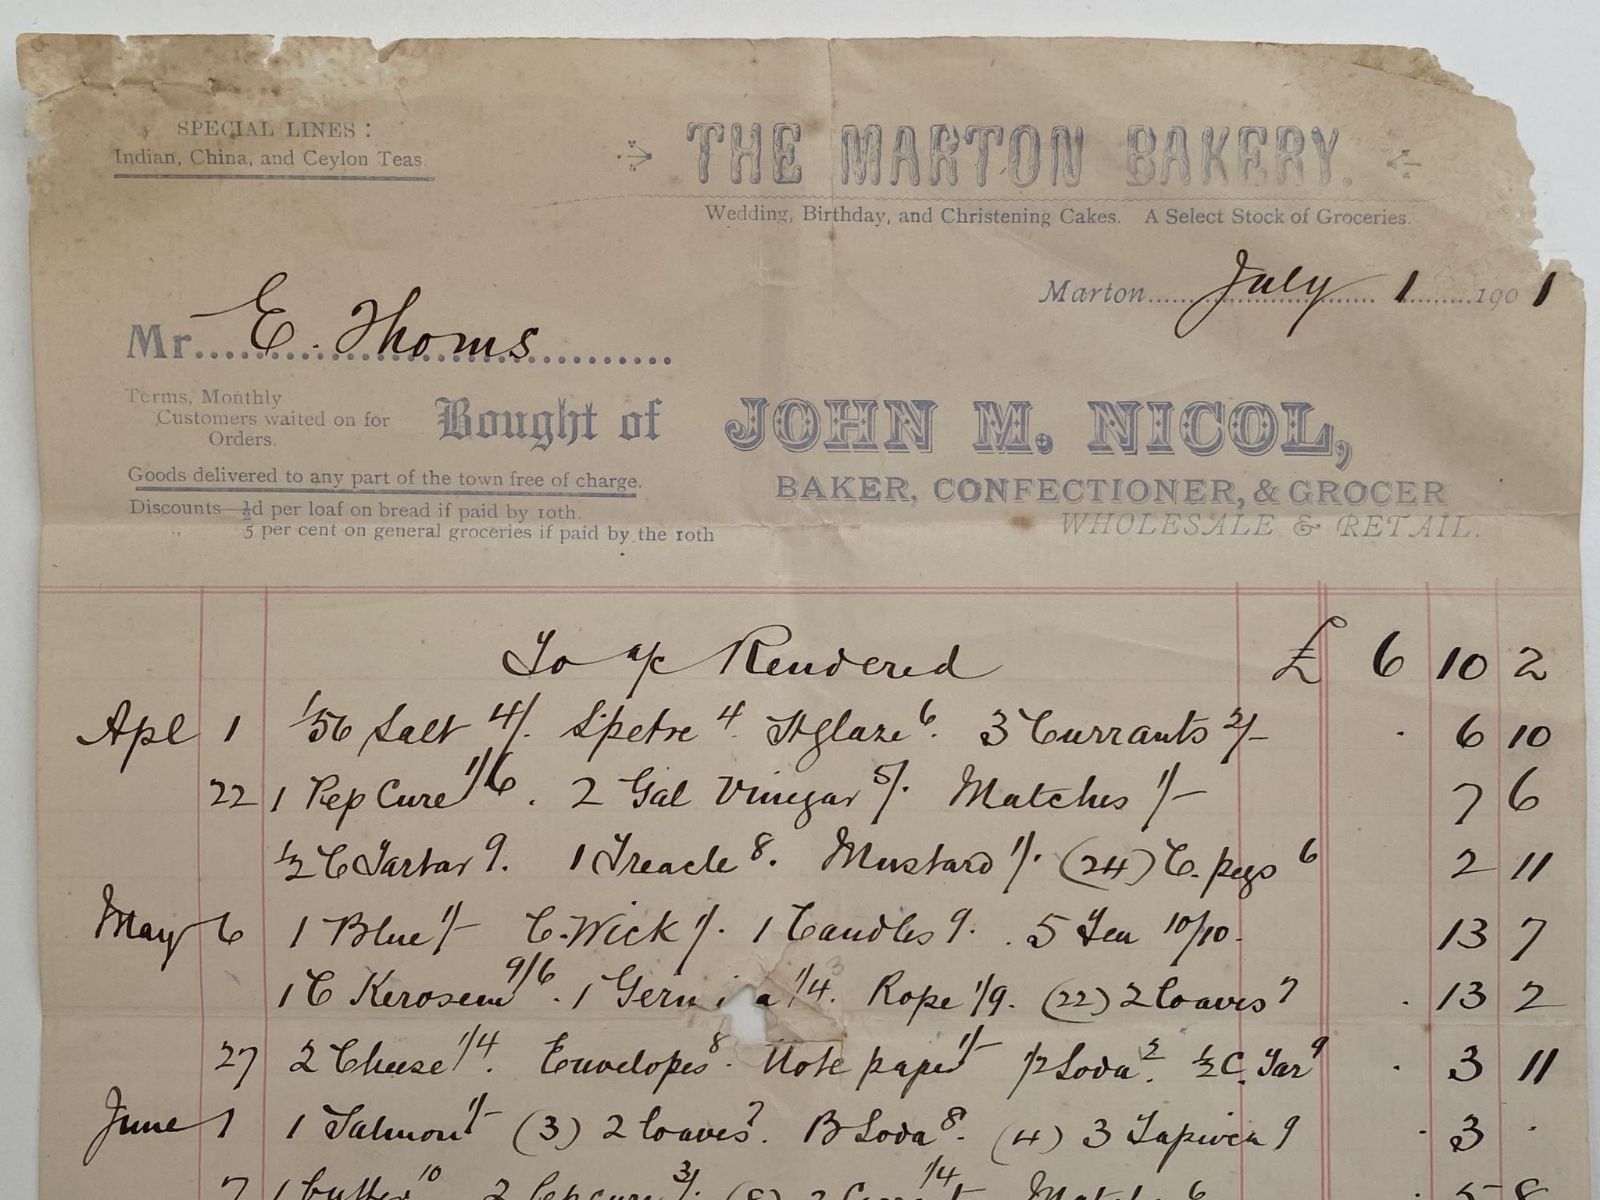 SPECIAL LINES:
Indian, China, and Ceylon Teas.
THE MARTON BAKERY.
Wedding, Birthday, and Christening Cakes. A Select Stock of Groceries.
Marton July 1 1901
Mr. E. Thoms
Terms, Monthly
Customers waited on for
Orders.
Bought of JOHN M. NICOL,
Goods delivered to any part of the town free of charge.
BAKER, CONFECTIONER, & GROCER
Discounts—½d per loaf on bread if paid by 10th.
5 per cent on general groceries if paid by the 10th
WHOLESALE & RETAIL.
To a/c Rendered £ 6 10 2
Apl 1 1/56 Salt 4/. S'petre 4. Stglaze 6. 3 Currants 2/- . 6 10
22 1 Pep Cure 1/6. 2 Gal Vinegar 5/. Matches 1/- 7 6
½ C Tartar 9. 1 Treacle 8. Mustard 1/. (24) C. pegs 6 2 11
May 6 1 Blue 1/- C. Wick 1/. 1 Candles 9. 5 Tea 10/10. 13 7
1 C Kerosene 9/6. 1 1/4. Rope 1/9. (22) 2 loaves 7 . 13 2
27 2 Cheese 1/4. Envelopes 8. Note paper 1/- Soda 2. ½ C. Tar 9 . 3 11
June 1 1 Salmon 1/- (3) 2 loaves 7. B Soda 8. (4) 3 Tapioca 9 . 3 .
7 1 butter 10 2 3/. (8) 1/4 6 5 8